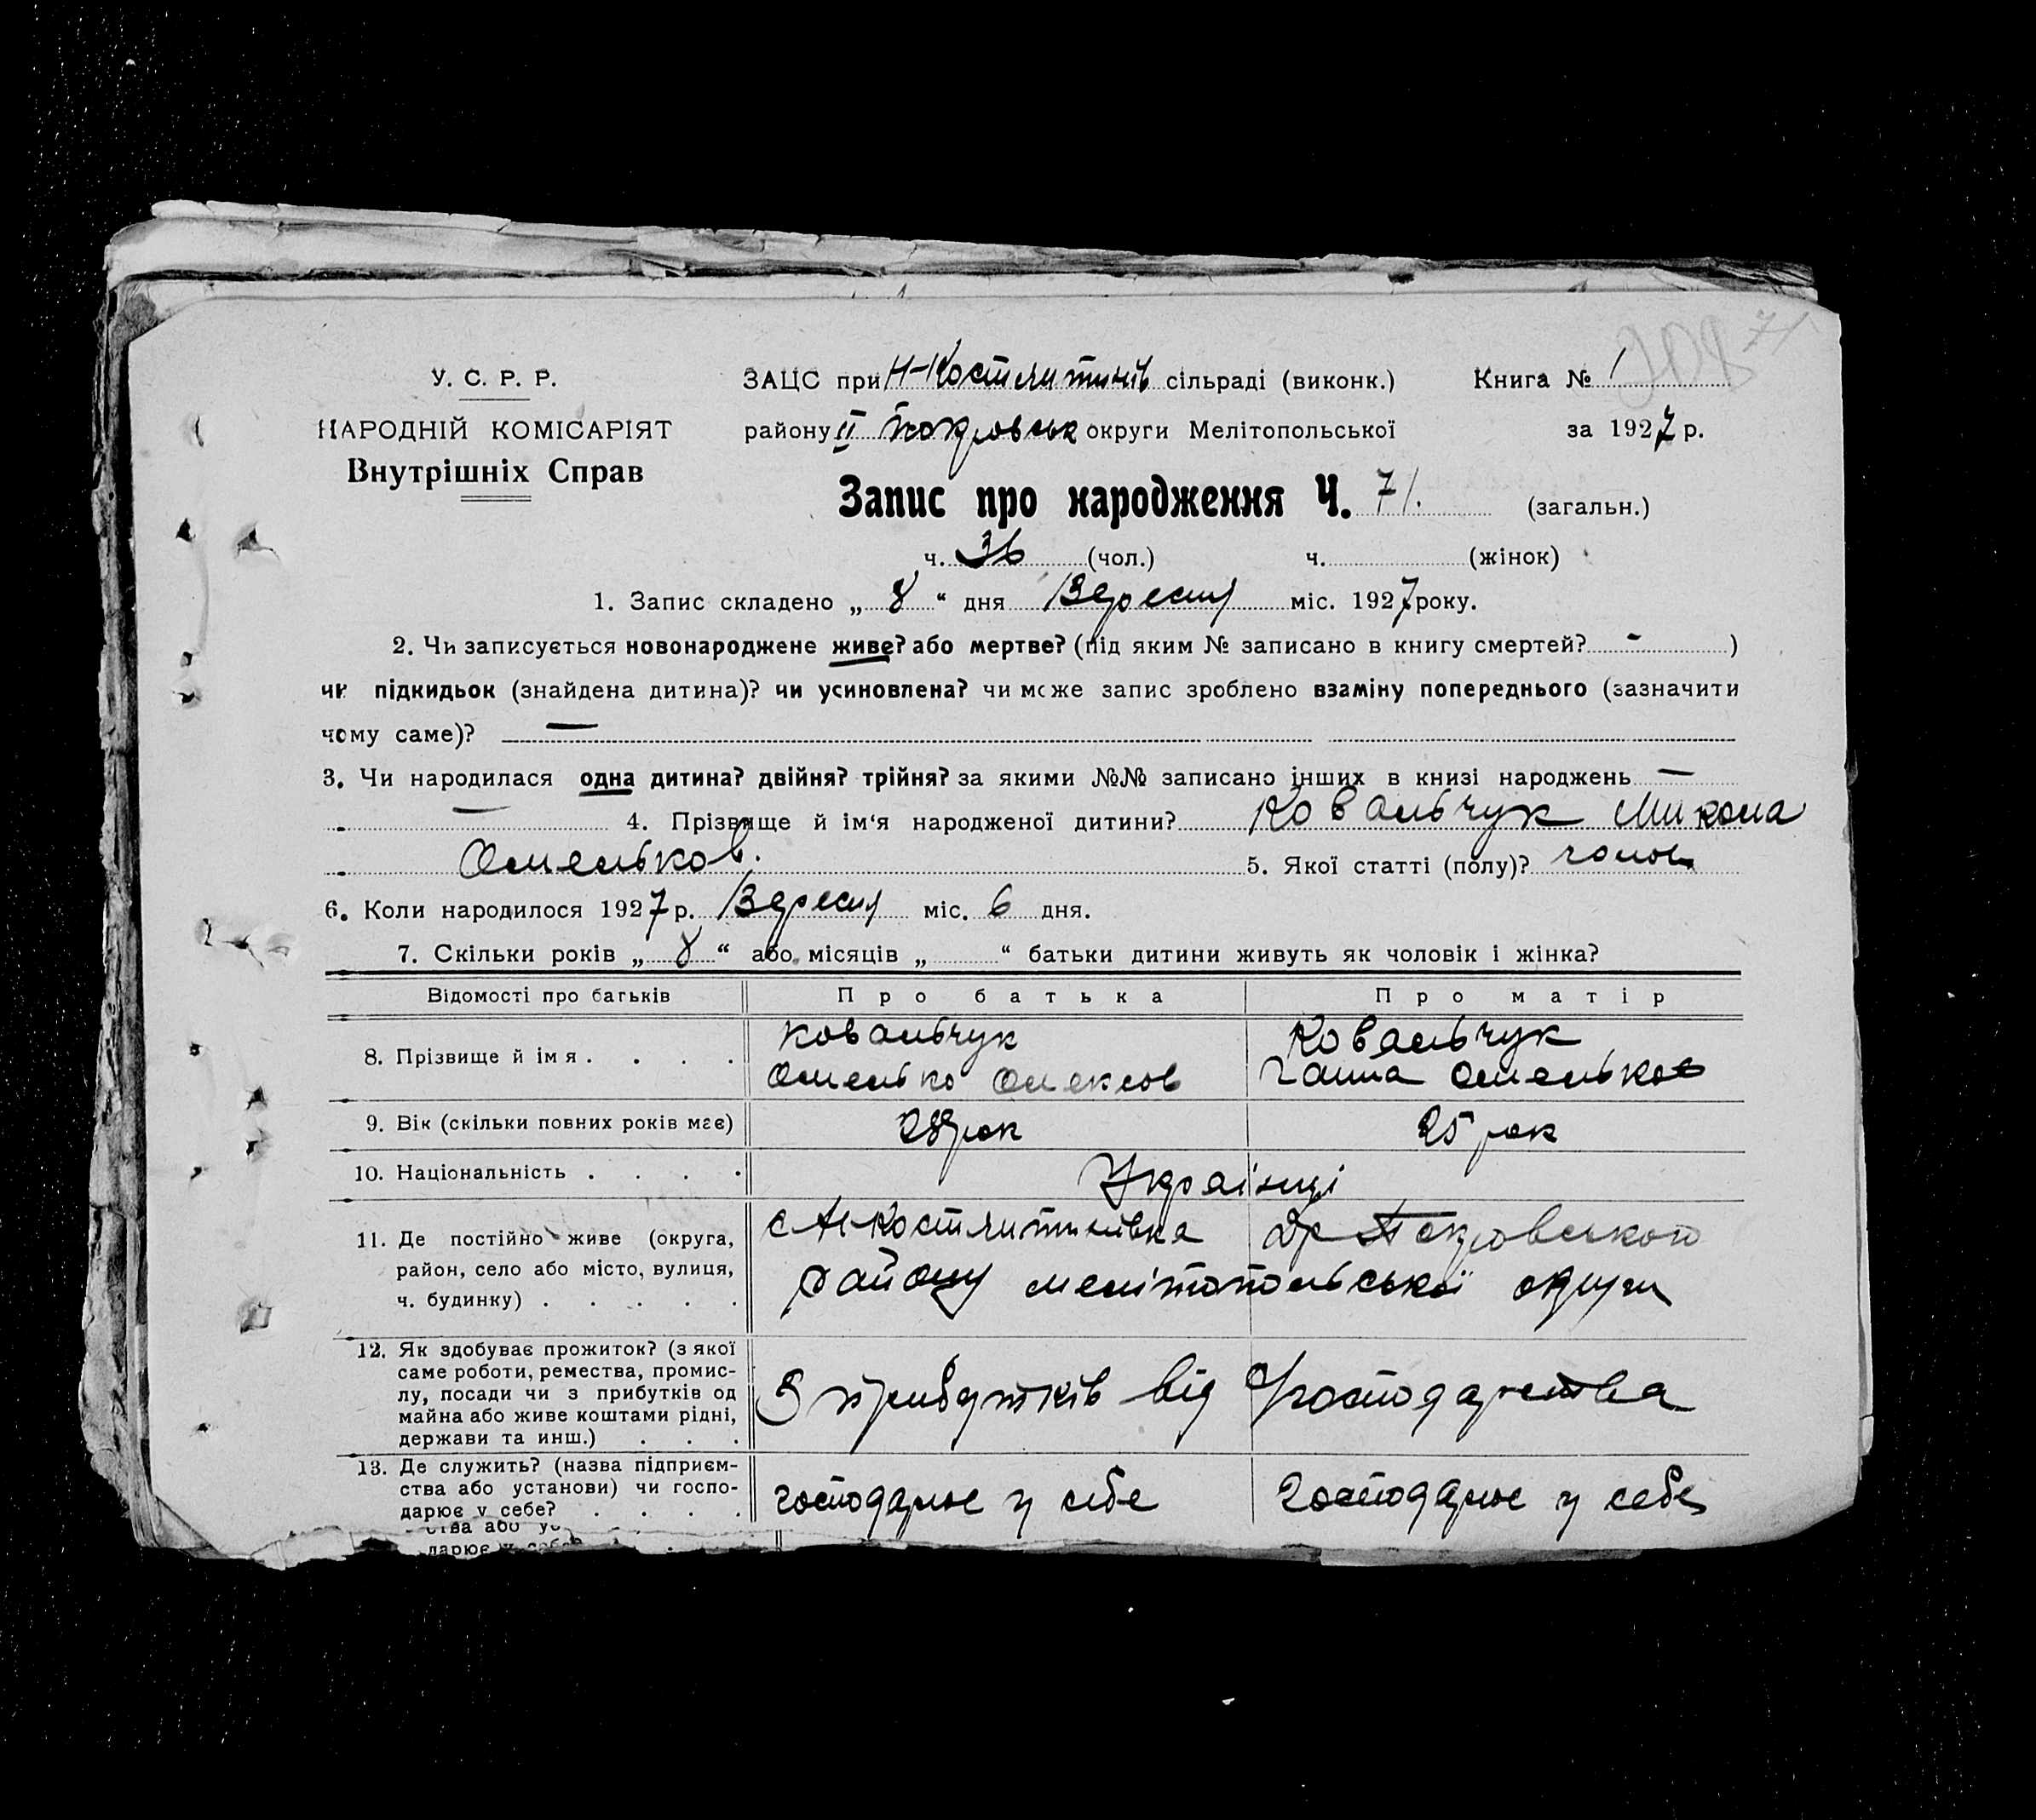 71
У. С. Р. Р.
НАРОДНІЙ КОМІСАРІЯТ
Внутрішніх Справ
ЗАЦС при Н-Костянтинів сільраді (виконк.)
Книга № 1
району ІІ Покровськ округи Мелітопольської
за 1927 р.
Запис про народження Ч. 71. (загальн.)
ч. 36 (чол.) ч. (жінок)
1. Запис складено „ 8 “ дня Вересня міс. 1927 року.
2. Чи записується новонароджене живе? або мертве? (під яким № записано в книгу смертей? - )
чи підкидьок (знайдена дитина)? чи усиновлена? чи може запис зроблено взаміну попереднього (зазначити
чому саме)? —
3. Чи народилася одна дитина? двійня? трійня? за якими №№ записано інших в книзі народжень —
— 4. Прізвище й ім‘я народженої дитини? Ковальчук Микола
Омельков. 5. Якої статті (полу)? чолов
6. Коли народилося 1927 р. Вересня міс. 6 дня.
7. Скільки років „ 8 “ або місяців „ “ батьки дитини живуть як чоловік і жінка?
Відомості про батьків
Про батька
Про матір
8. Прізвище й ім я . . . .
Ковальчук
Омелько Олексов
Ковальчук
Ганна Омельков
9. Вік (скільки повних років має)
28 рок
25 рок
10. Національність . . . .
Українці
11. Де постійно живе (округа,
район, село або місто, вулиця,
ч. будинку) . . . . .
с Н-Костянтинівка Покровського
району мелітопольської округи
12. Як здобуває прожиток? (з якої
саме роботи, ремества, промис-
лу, посади чи з прибутків од
майна або живе коштами рідні,
держави та инш.) . . .
З прибутків від господарства
13. Де служить? (назва підприєм-
ства або установи) чи госпо-
дарює у себе? . . . .
господарює у себе
господарює у себе
ства або ус
дарює у себе?